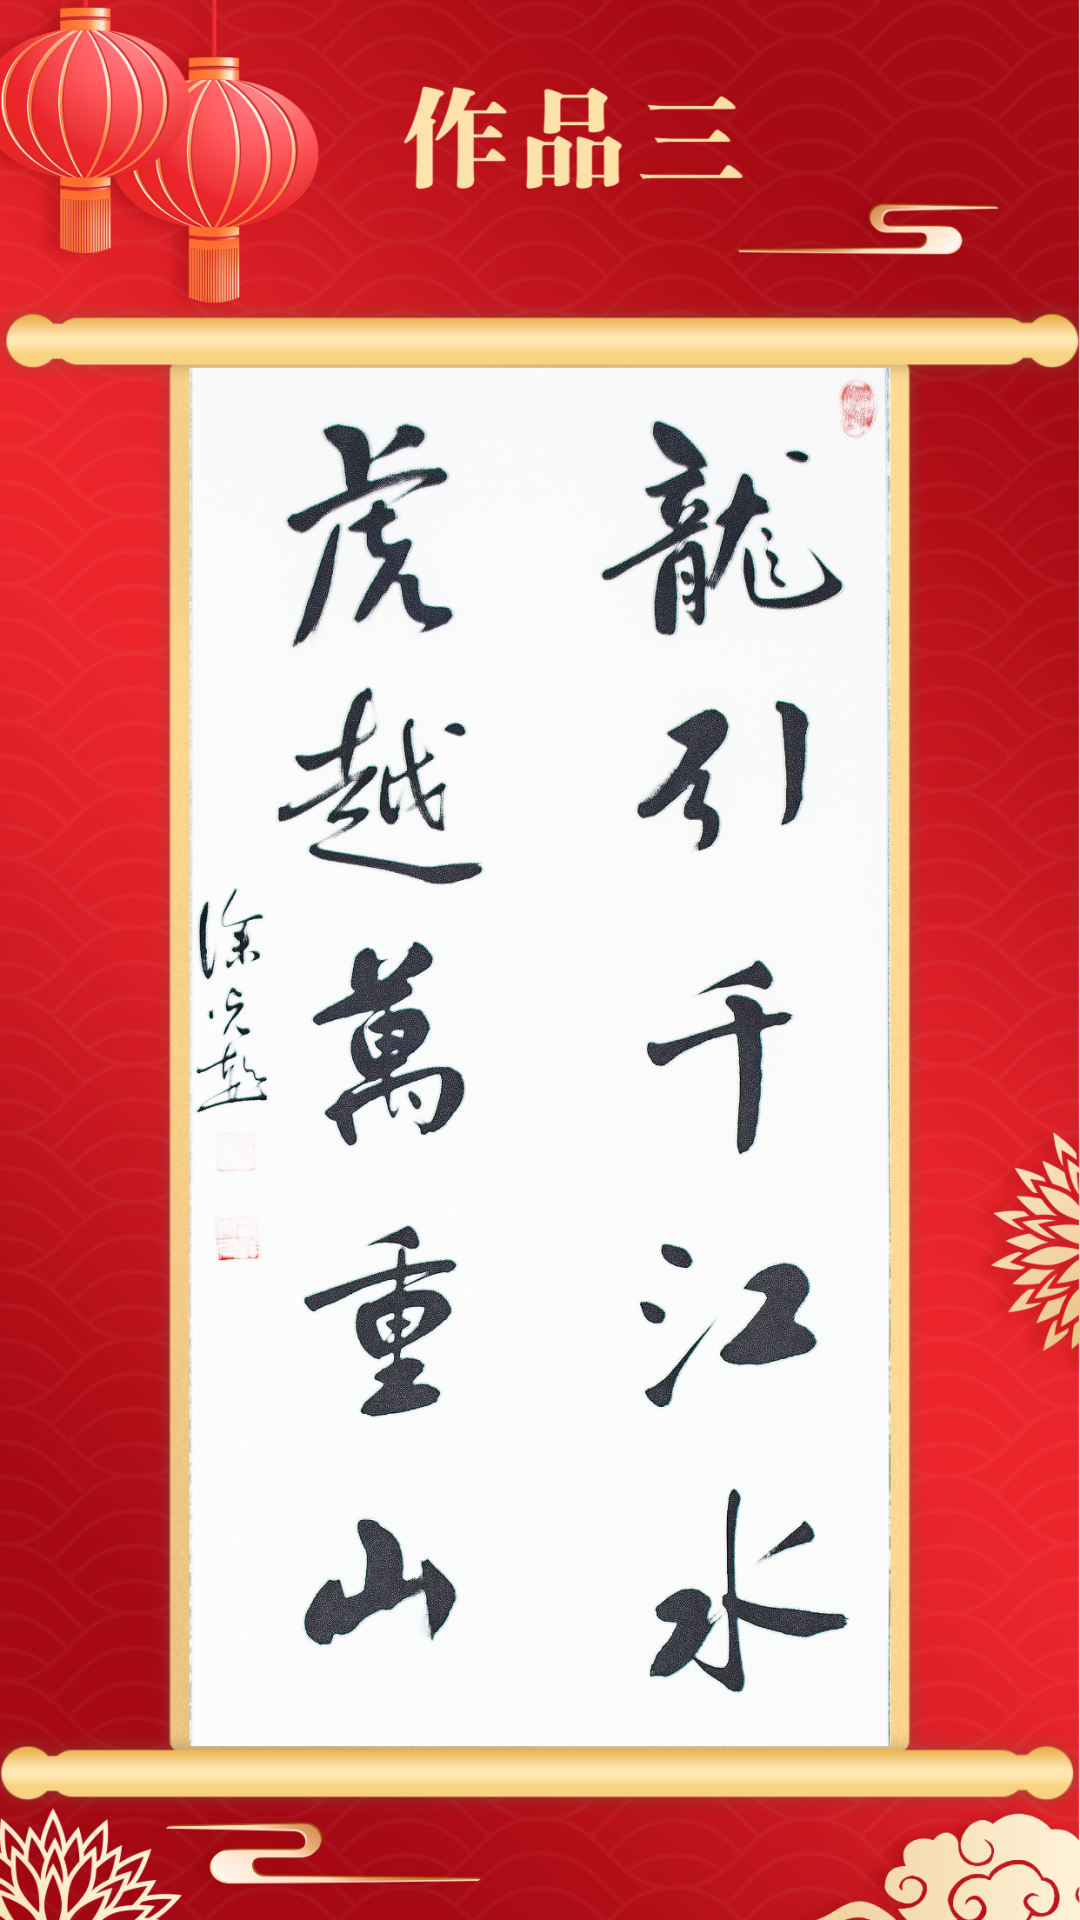 作品三
龍引千江水
虎越萬重山